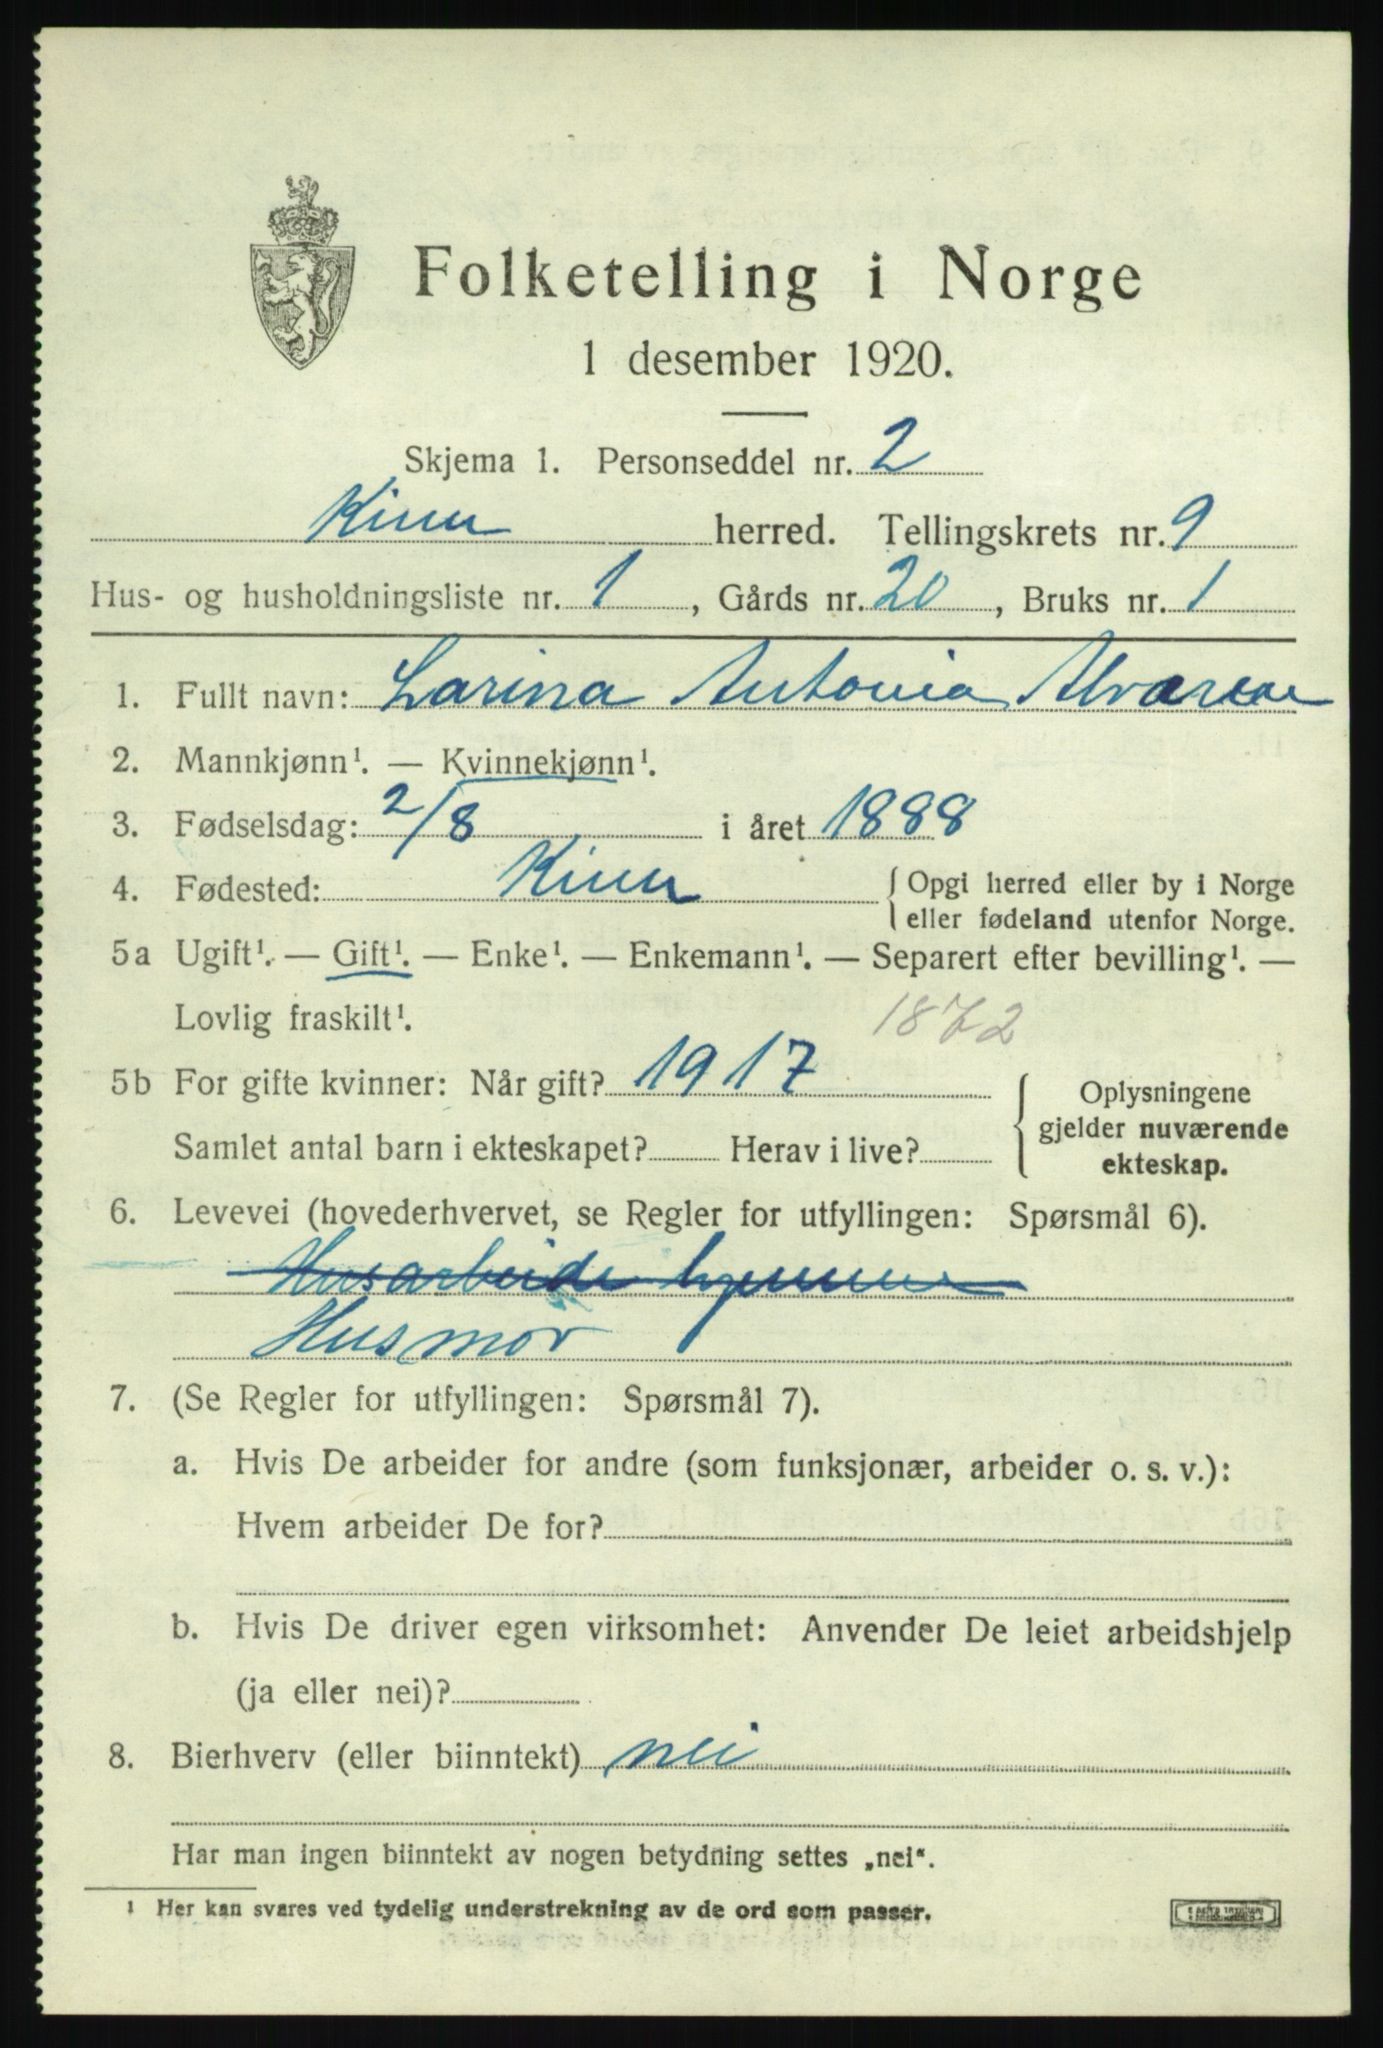 Folketelling i Norge
1 desember 1920.
Skjema 1. Personseddel nr. 2
Kinn herred. Tellingskrets nr. 9
Hus- og husholdningsliste nr. 1, Gårds nr. 20, Bruks nr. 1
1. Fullt navn: Larina Antonia
2. Mannkjønn¹. — Kvinnekjønn¹.
3. Fødselsdag: 2/8 i året 1888
4. Fødested: Kinn { Opgi herred eller by i Norge
eller fødeland utenfor Norge.
5a Ugift¹. — Gift¹. — Enke¹. — Enkemann¹. — Separert efter bevilling¹. —
Lovlig fraskilt¹. 1872
5b For gifte kvinner: Når gift? 1917
Samlet antal barn i ekteskapet? Herav i live?
Oplysningene
gjelder nuværende
ekteskap.
6. Levevei (hovederhvervet, se Regler for utfyllingen: Spørsmål 6).
Husarbeide hjemme
Husmor
7. (Se Regler for utfyllingen: Spørsmål 7).
a. Hvis De arbeider for andre (som funksjonær, arbeider o. s. v.):
Hvem arbeider De for?
b. Hvis De driver egen virksomhet: Anvender De leiet arbeidshjelp
(ja eller nei)?
8. Bierhverv (eller biinntekt) nei
Har man ingen biinntekt av nogen betydning settes „nei“.
¹ Her kan svares ved tydelig understrekning av de ord som passer.